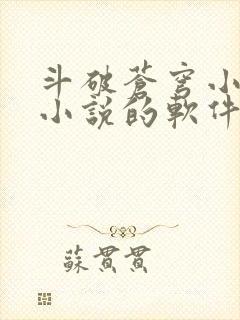 斗破蒼穹小
小說的軟件
蘇貫貫